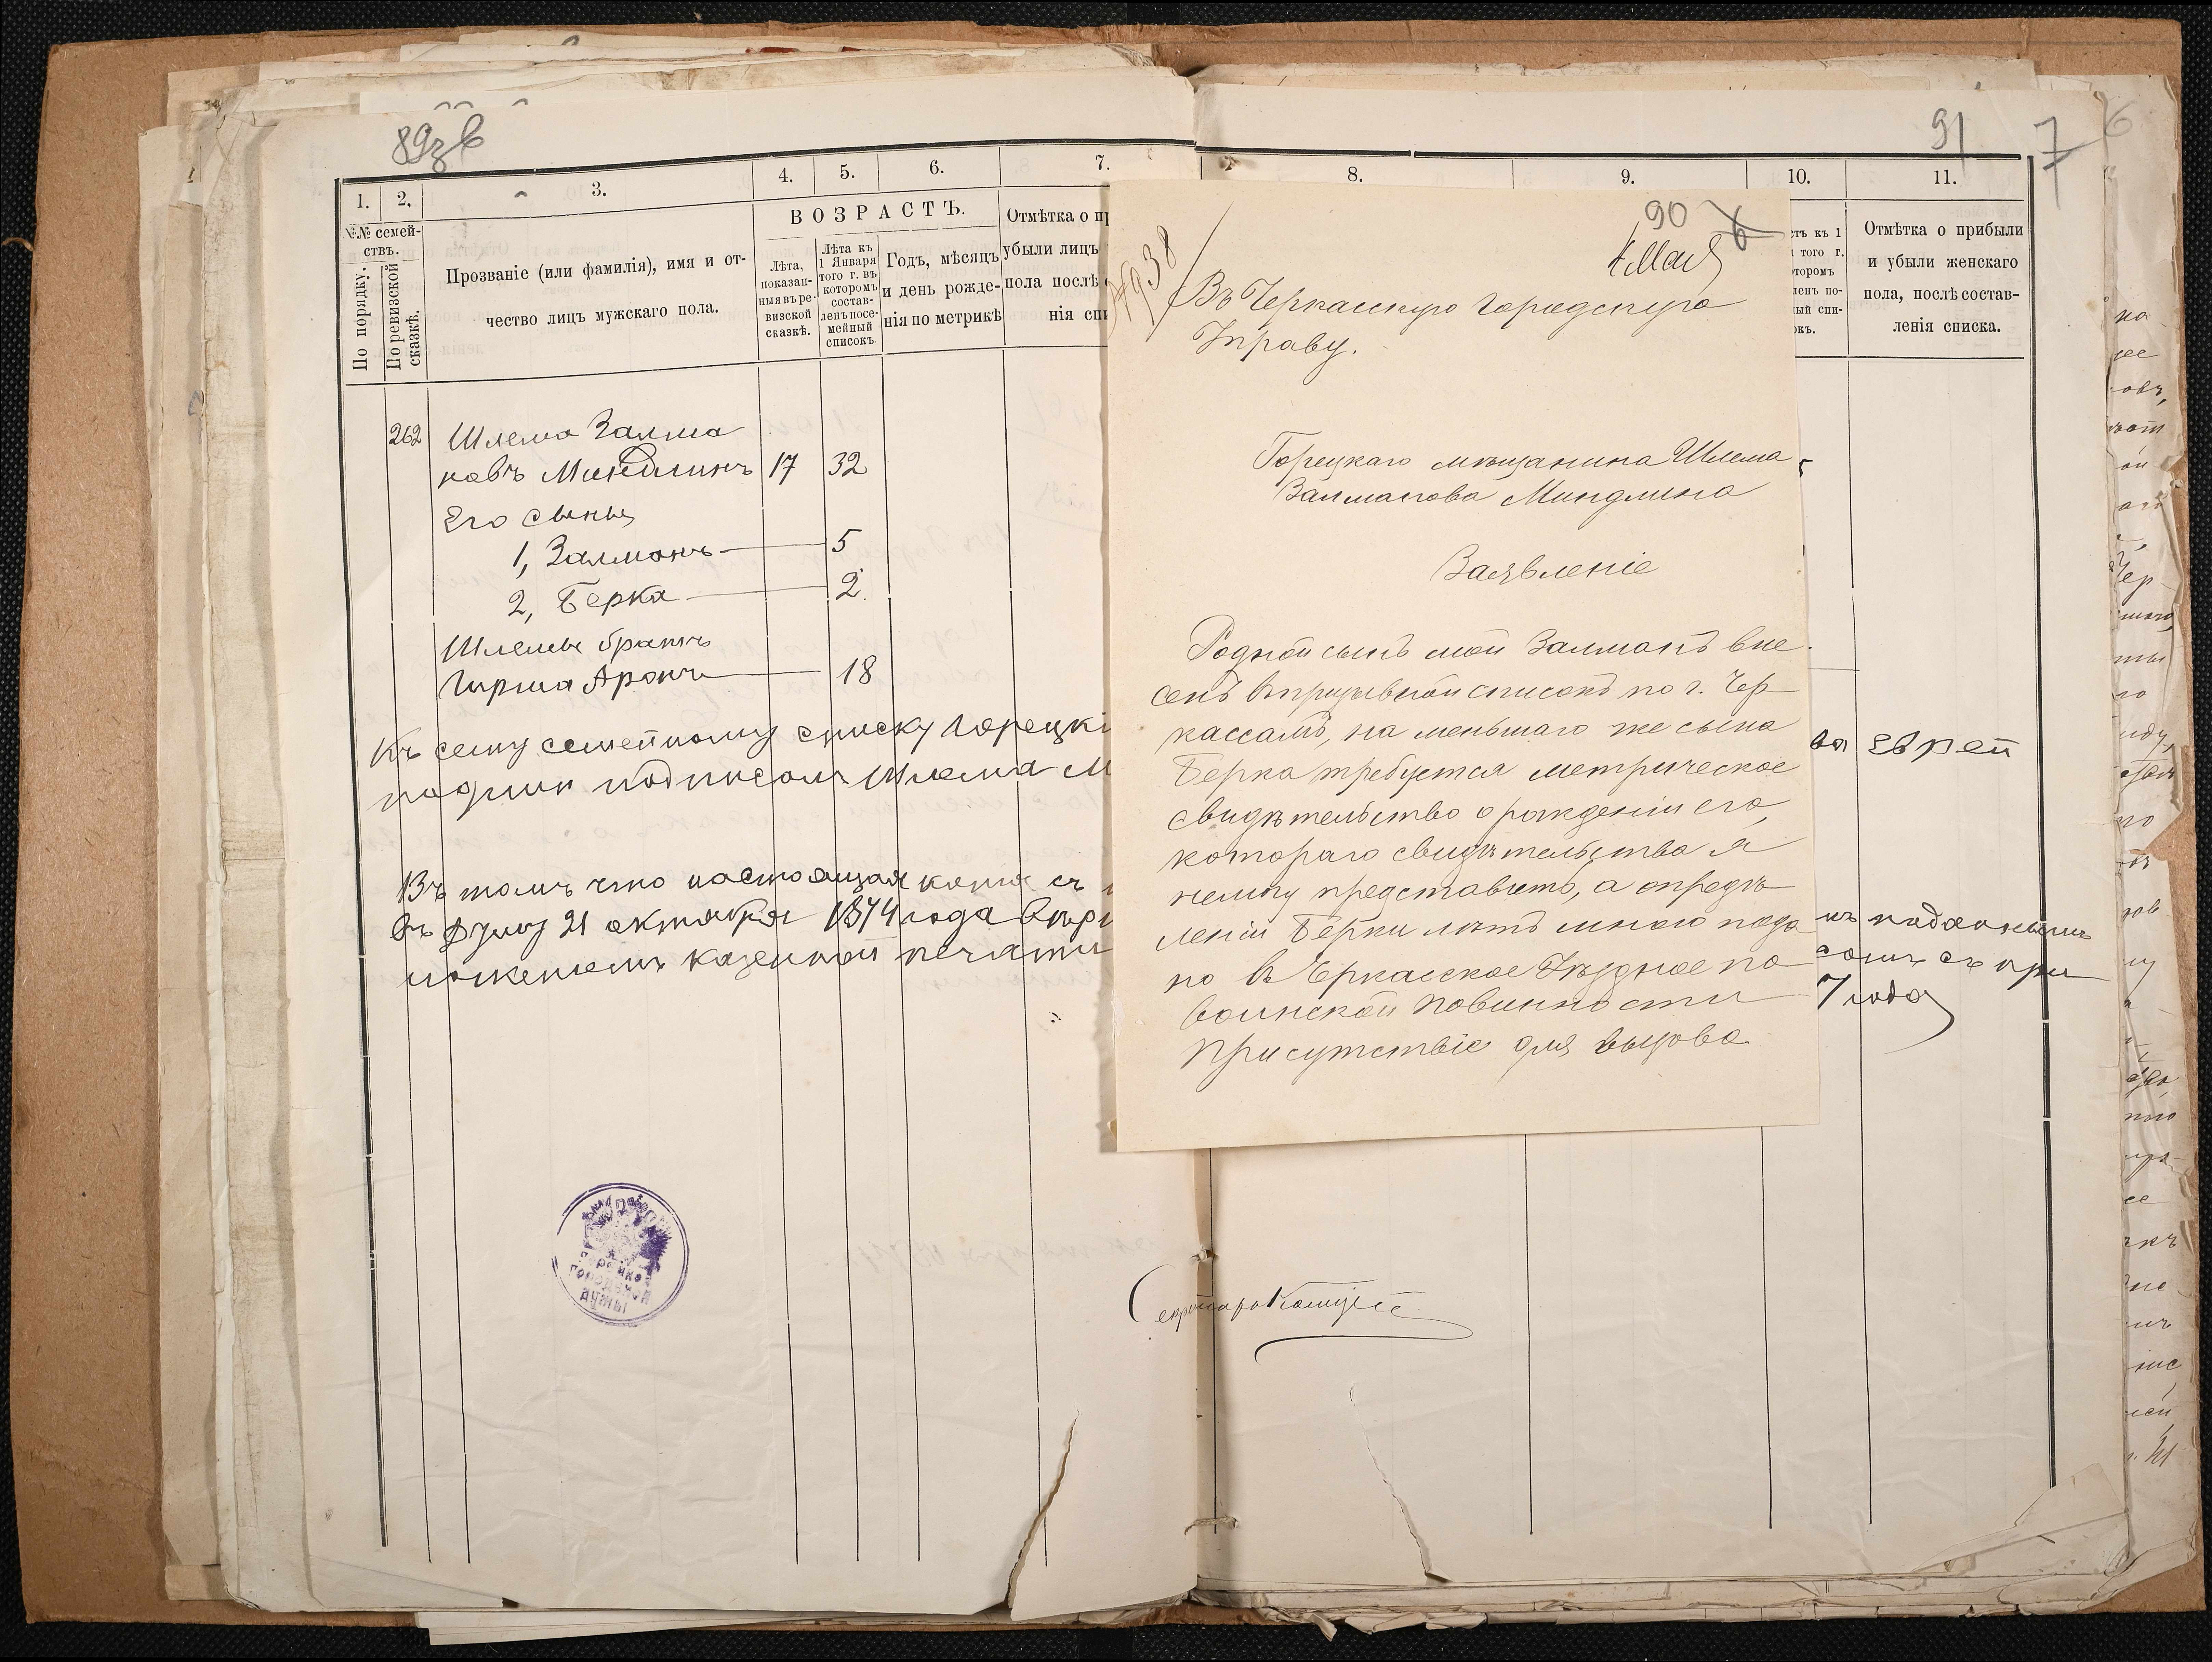 89зв
1.
2.
3.
4.
5.
6.
7.
№№ семей-
ствъ.
По порядку.
По ревизской
сказкѣ.
Прозваніе (или фамилія), имя и от-
чество лицъ мужскаго пола.
ВОЗРАСТЪ.
Лѣта,
показан-
ныя въ ре-
визской
сказкѣ.
Лѣта къ
1 Января
того г. въ
которомъ
состав-
ленъ посе-
мейный
списокъ
Годъ, мѣсяцъ
и день рожде-
нія по метрикѣ
Отмѣтка о пр
убыли лицъ
пола послѣ
нія спи
262 Шлема Залма
новъ Миндлинъ 17 32
Его сыны
1, Залманъ 5
2, Берка 2.
Шлемы братъ
Гирша Аронъ 18
Къ сему семейному списку Горецкі
подписомъ Шлема М
Въ томъ что настоящая копія съ
въ Думу 21 октября 1874 года вѣр
ложеніемъ казенной печати
Горецкой
городской
думы
91
7
6
8.
9.
10.
11.
сть къ 1
того г.
торомъ
ленъ по-
ный спи-
окъ.
Отмѣтка о прибыли
и убыли женскаго
пола, послѣ состав-
ленія списка.
90
6
4 Мая
№938
Въ Черкасскую Городскую
Управу.
Горецкаго мѣщанина Шлема
Залманова Миндлина
Заявленіе
Родной сынъ мой Залманъ вне
сенъ въ призывной списокъ по г. Чер
кассамъ, на меньшаго же сына
Берка требуется метрическое
свидѣтельство о рожденіи его,
котораго свидѣтельства я
немогу представить, а опредѣ
леніи Берки лѣтъ мною пода
но въ Черкасское Уѣздное по
воинской повинности
Присутствіе для вызова
ва еврей
нъ поданнымъ
сомъ съ при
7 года
Секретарь